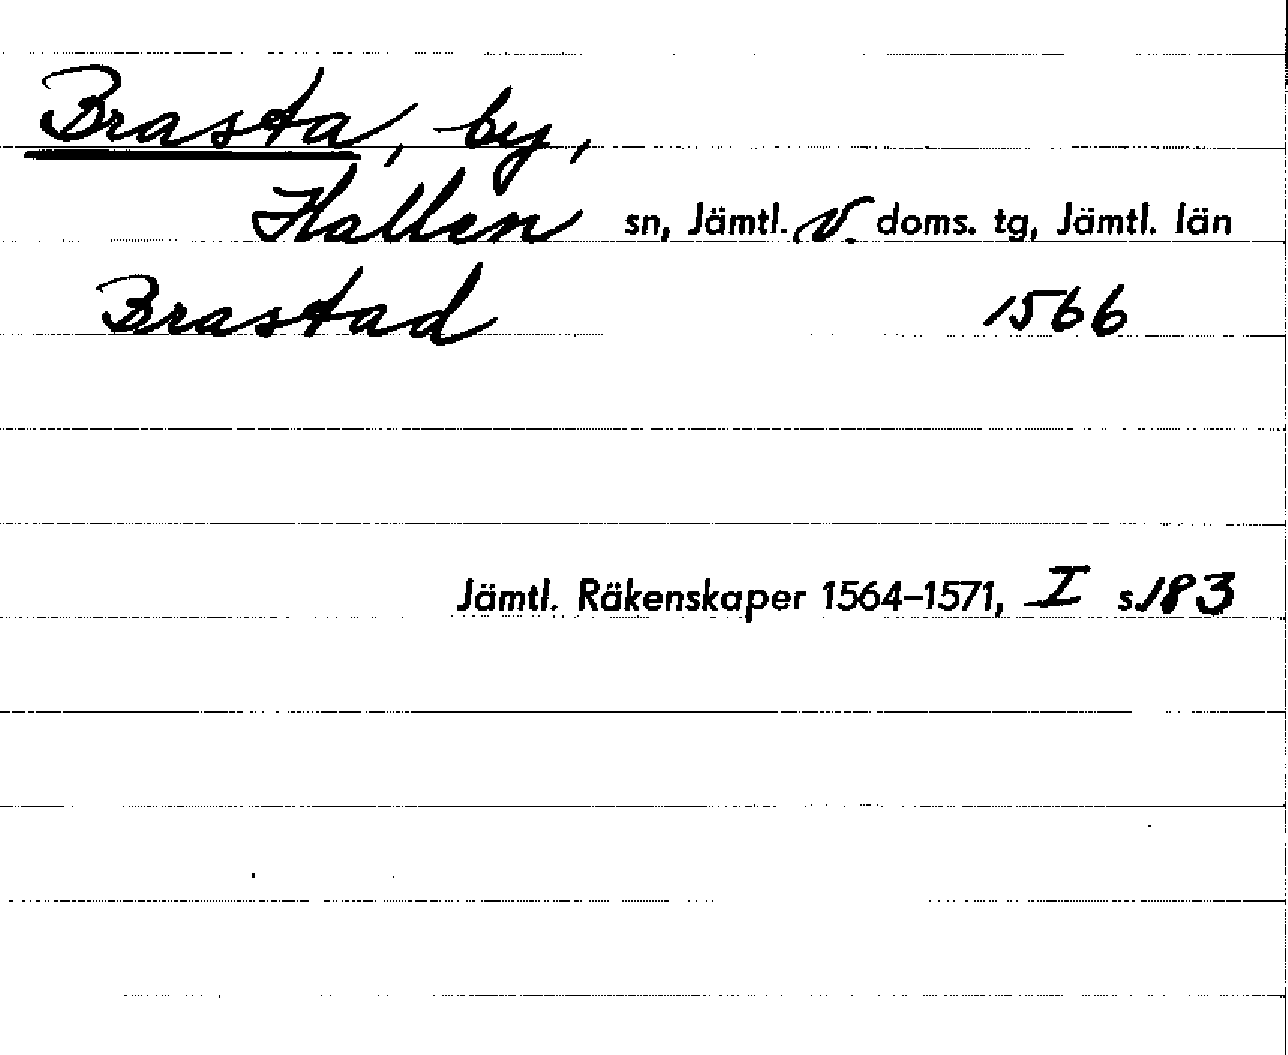 Brasta, by,
Hallen sn, Jämtl. V. doms. tg, Jämtl. län
Brastad 1566
Jämtl. Räkenskaper 1564–1571, I s. 183